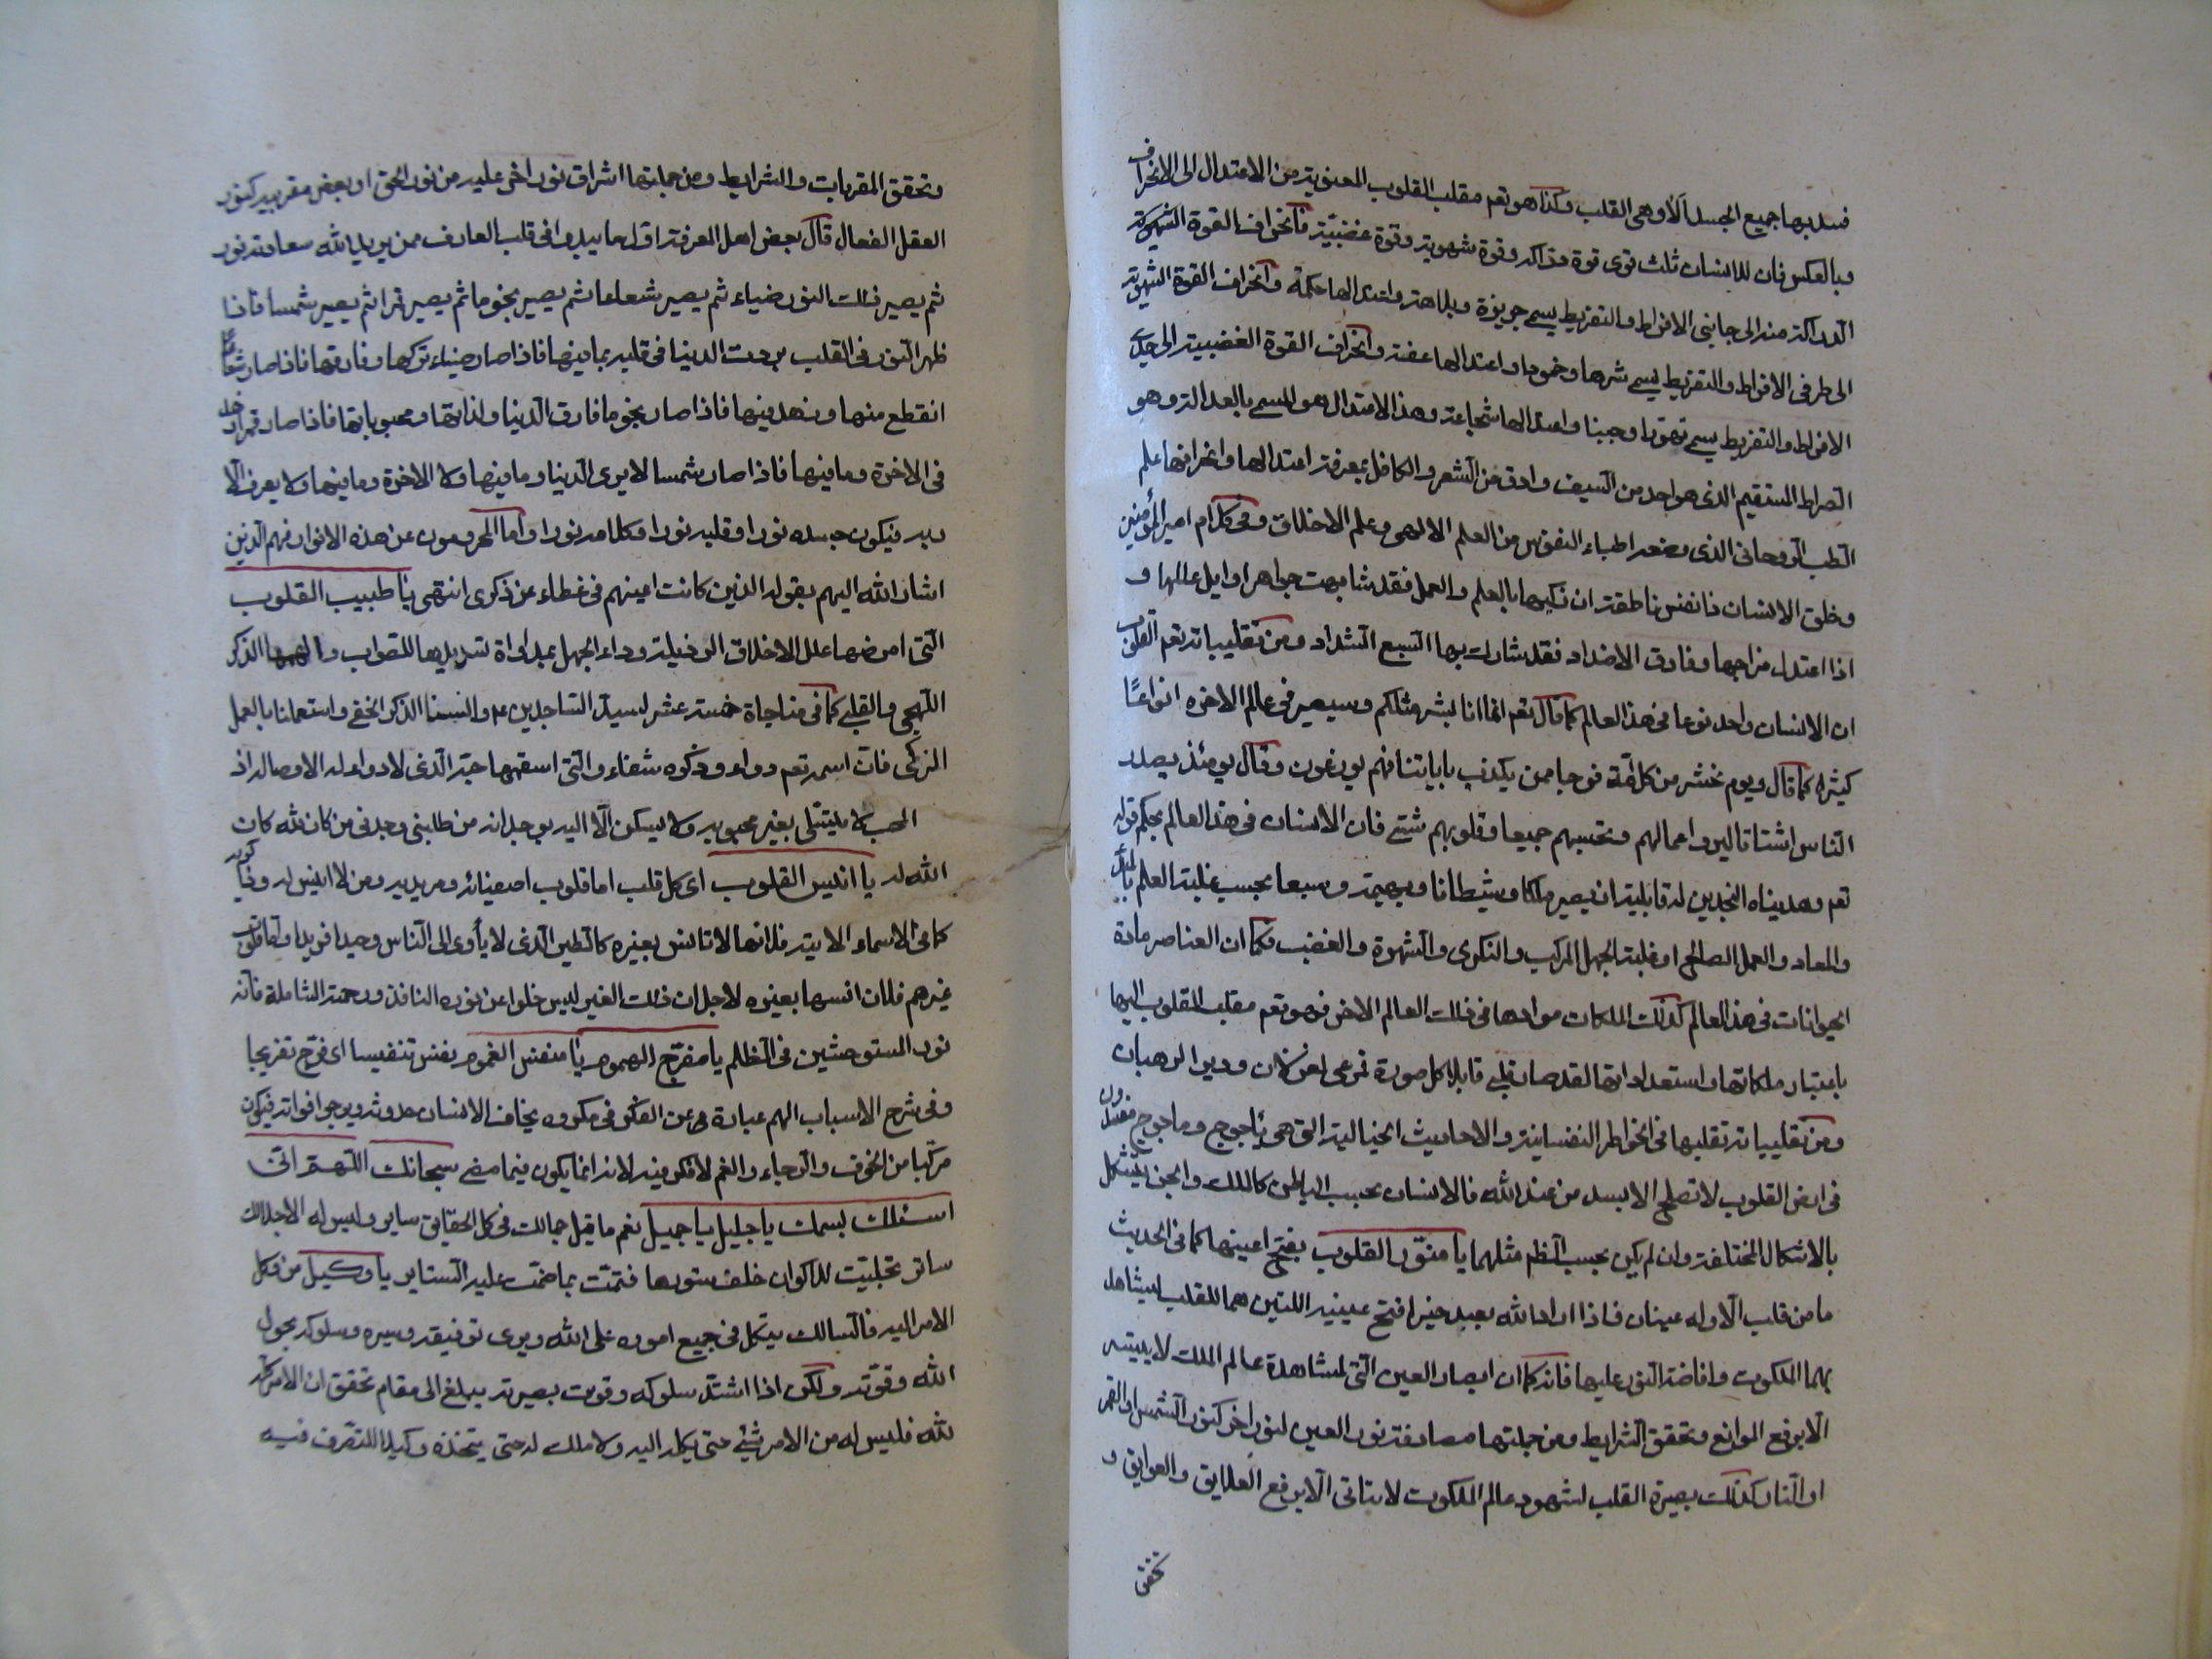 فسد بها جميع الجسد الا وهى القلب وكذا هو تعم مقلب القلوب المعنوية من الاعتدال الى الانحراف
وبالعكس فان للانسان ثلث قوى قوة دراكه وقوة شهوية وقوة غضبيّة فانحراف القوة
الدراكة منه الى جانبى الافراط والتفريط يسمى جربزة وبلاهة واعتدالها حكمة وانحراف القوة الشهوية
الى طرفى الافراط والتفريط يسمى شرها وخمودا واعتدالها عفة وانحراف القوة الغضبية الى حدى
الافراط والتفريط يسمى تهوّرا وجبنا واعتدالها شجاعة وهذا الاعتدال هو المسمى بالعدالة وهو
الصراط المستقيم الذى هو احد من السيف وادق من الشعر والكافل بمعرفة اعتدالها وانحرافها علم
الطب الروحانى الذى وضعه اطباء النفوس من العلم الالهى وعلم الاخلاق وفى كلام امير المؤمنين
وخلق الانسان ذا نفس ناطقة ان زكيها بالعلم والعمل فقد شابهت جواهر اوايل عللها و
اذا اعتدل مزاجها وفارق الاضداد فقد شارك بها السبع الشداد ومن تقليباته تعم القلوب
ان الانسان واحد نوعا فى هذا العالم كما قال تعم انما انا بشر مثلكم وسيصير فى عالم الاخرة انواعًا
كثيرة كما قال ويوم نحشر من كل امّة فوجا ممن يكذب باياتنا فهم يوزعون وقال يومئذ يصدر
الناس اشتاتا ليروا اعمالهم وتحسبهم جميعا وقلوبهم شتى فان الانسان فى هذا العالم بحكم قوله
تعم وهديناه النجدين له قابلية ان يصير ملكا وشيطانا وبهيمة وسبعا بحسب غلبة العلم بالمبدأ
والمعاد والعمل الصالح او غلبة الجهل المركب والنكرى والشهوة والغضب فكما ان العناصر مادة
الحيوانات فى هذا العالم كذلك الملكات موادها فى ذلك العالم الاخر فهو تعم مقلب القلوب اليها
باعتبار ملكاتها واستعداداتها لقد صار قلبى قابلا كل صورة فمرعى لغزلان ودير الرهبان
ومن تقليباته تقلبها فى الخواطر النفسانية والاحاديث الخيالية التى هى يأجوج وماجوج مفسدون
فى ارض القلوب لا تصلح الا بسد من عند الله فالانسان بحسب الباطن كالملك والجن يتشكل
بالاشكال المختلفة وان لم يكن بحسب الظم مثلهما يا منوّر القلوب بفتح اعينها كما فى الحديث
ما من قلب الا وله عينان فاذا اراد الله بعبد خيرا فتح عينيه اللتين هما للقلب ليشاهد
بهما الملكوت وافاضة النور عليها فانه كما ان ابصار العين التى لمشاهدة عالم الملك لا يتيسر
الا برفع الموانع وتحقق الشرايط ومن جملتها مصادفة نور العين لنور اخر كنور الشمس او القمر
او النار كذلك بصيرة القلب لشهود عالم الملكوت لا يتاتى الا برفع العلايق والعوايق و
تحقق
وتحقق المقربات والشرايط ومن جملتها اشراق نور اخر عليه من نور الحق او بعض مقربيه كنور
العقل الفعال قال بعض اهل المعرفة اول ما يبدو فى قلب العارف ممن يريد الله سعادته نور
ثم يصير ذلك النور ضياء ثم يصير شعاعا ثم يصير نجوما ثم يصير قمرا ثم يصير شمسا فاذا
ظهر النور فى القلب بردت الدنيا فى قلبه بما فيها فاذا صار ضياء تركها وفارقها فاذا صار شعاعا
انقطع منها وزهد فيها فاذا صار نجوما فارق الدنيا ولذاتها ومحبوباتها فاذا صار قمرا زهد
فى الاخرة وما فيها فاذا صار شمسا لا يرى الدنيا وما فيها ولا الاخرة وما فيها ولا يعرف الا
ربه فيكون جسده نورا وقلبه نورا وكلامه نورا واما المحرومون عن هذه الانوار فهم الذين
اشار الله اليهم بقوله الذين كانت اعينهم فى غطاء عن ذكرى انتهى يا طبيب القلوب
التى امرضها علل الاخلاق الرذيلة وداء الجهل بمداواة تسديدها للصواب والهمها الذكر
اللهجى والقلبى كما فى مناجاة خمسة عشر لسيد الساجدين عم وانسنا بالذكر الخفى واستعملنا بالعمل
الزكى فان اسمه تعم دواء وذكره شفاء والتى اسقمها حبه الذى لا دواء له الا وصاله اذ
المحب لا يتسلى بغير محبوبه ولا يسكن الا اليه بوجدانه من طلبنى وجدنى من كان لله كان
الله له يا انيس القلوب اى كل قلب اما قلوب اصفيائه ومريديه ومن لا انيس له
كما فى الاسماء الاتية فلانها لا تانس بغيره كالطير الذى لا يأوى الى الناس وحيدا فريدا واما قلوب
غيرهم فلان انسها بغيره لاجل ان ذلك الغير ليس خلوا عن نوره النافذ ورحمته الشاملة فانه
نور المستوحشين فى الظلم يا مفرّج الهموم يا منفس الغموم نفس تنفيسا اى فرّج تفريجا
وفى شرح الاسباب الهم عبارة عن الفكر فى مكروه يخاف الانسان حدوثه ويرجو فواته فيكون
مركبا من الخوف والرجاء والغم لا فكر فيه لانه انما يكون فيما مضى سبحانك اللهم انى
اسئلك بسمك يا جليل يا جميل نعم ما قيل جمالك فى كل الحقايق ساير وليس له الا جلالك
ساتر تجليت للاكوان خلف ستورها فنمّت بما ضمّت عليه الستاير يا وكيل من وكل
الامر اليه فالسالك يتكل فى جميع اموره على الله ويرى توفيقه وسيره وسلوكه بحول
الله وقوته ولكن اذا اشتد سلوكه وقويت بصيرته يبلغ الى مقام تحقق ان الامر كله
لله فليس له من الامر شئ حتى يكله اليه ولا ملك له حتى يتخذه وكيلا للتصرف فيه